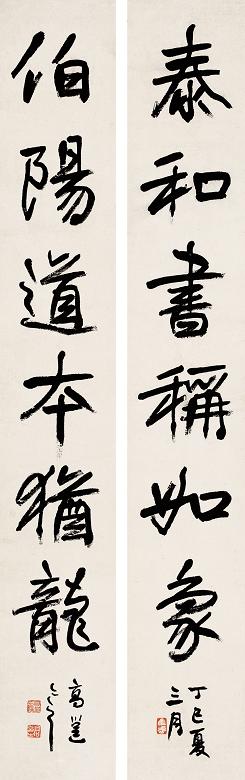 泰和書稱如象
丁巳夏
三月
伯陽道本猶龍
高邕